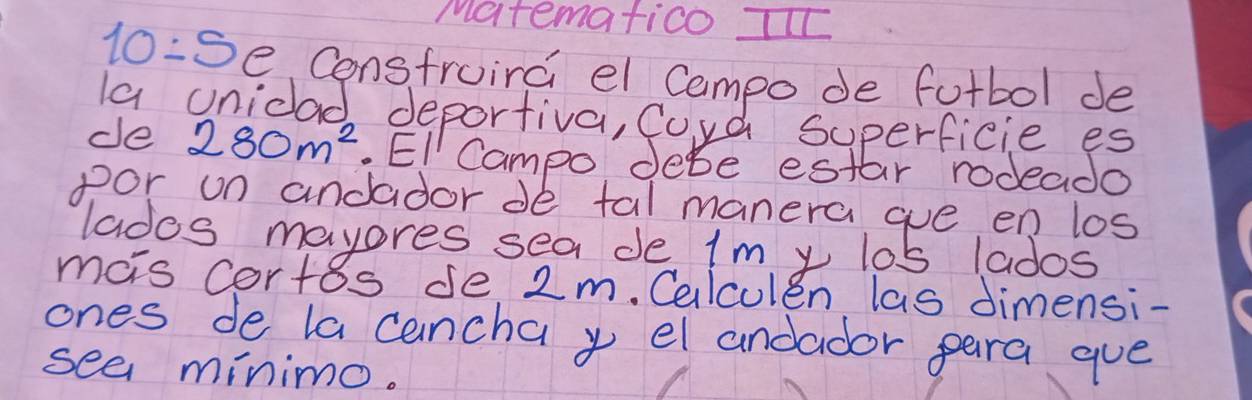 Matematico III
10:Se construirá el campo de futbol de
la unidad deportiva, cuya superficie es
de 280m². El campo debe estar rodeado
por un andador de tal manera que en los
lados mayores sea de 1m y los lados
más cortos de 2m. Calculén las dimensi-
ones de la cancha y el andador para que
sea mínimo.